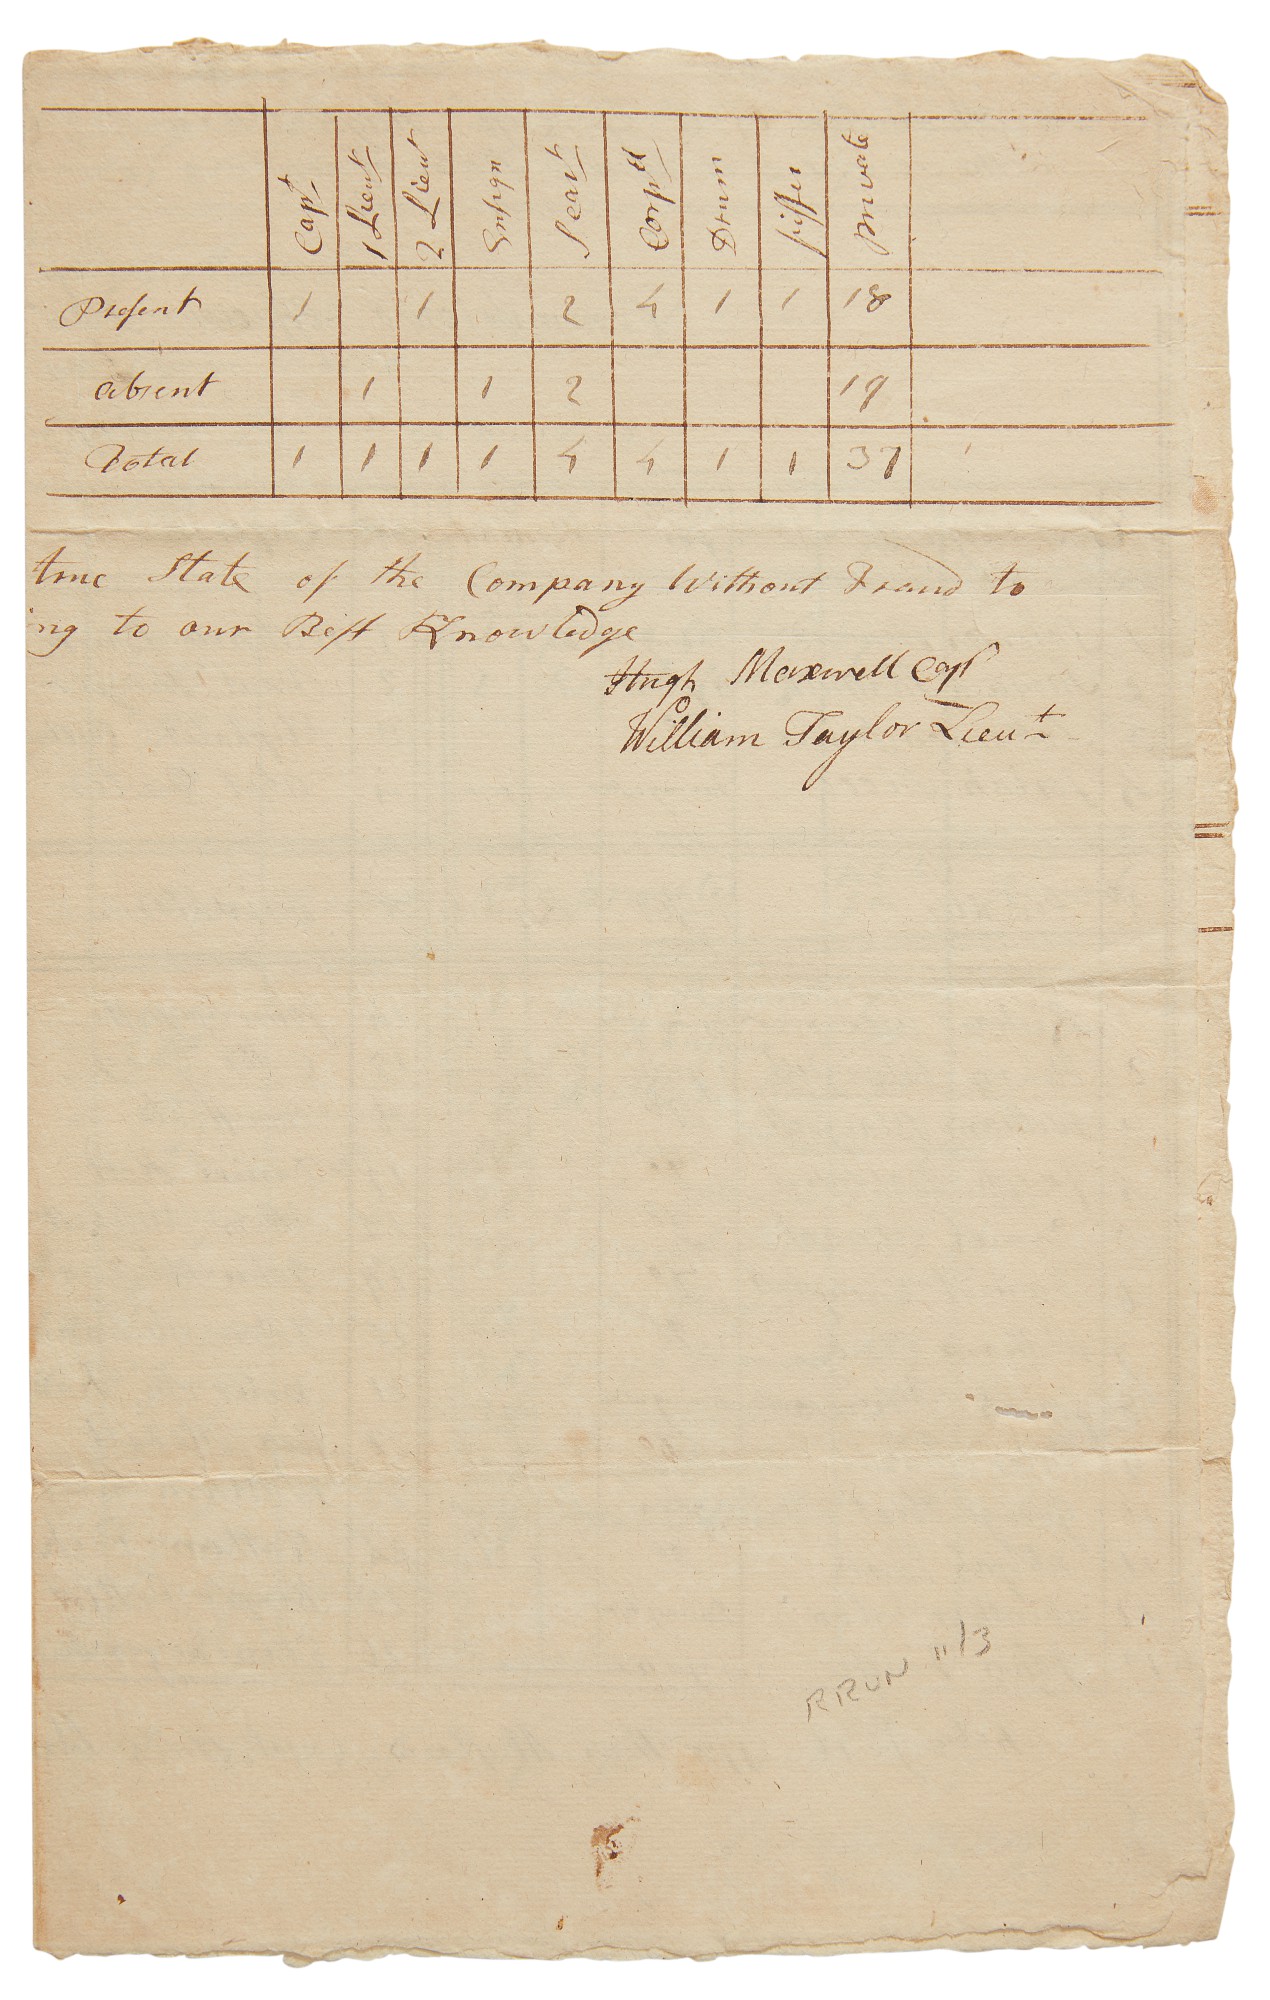 Capt 1 Lieut 2 Lieut Ensign Seart Corpll Drum fiffer private
Present 1 1 2 4 1 1 18
absent 1 1 2 19
Total 1 1 1 1 4 4 1 1 37
true State of the Company Without Fraud to
ng to our Best Knowledge
Hugh Maxwell Capt
William Taylor Lieut
RRUN 11/3